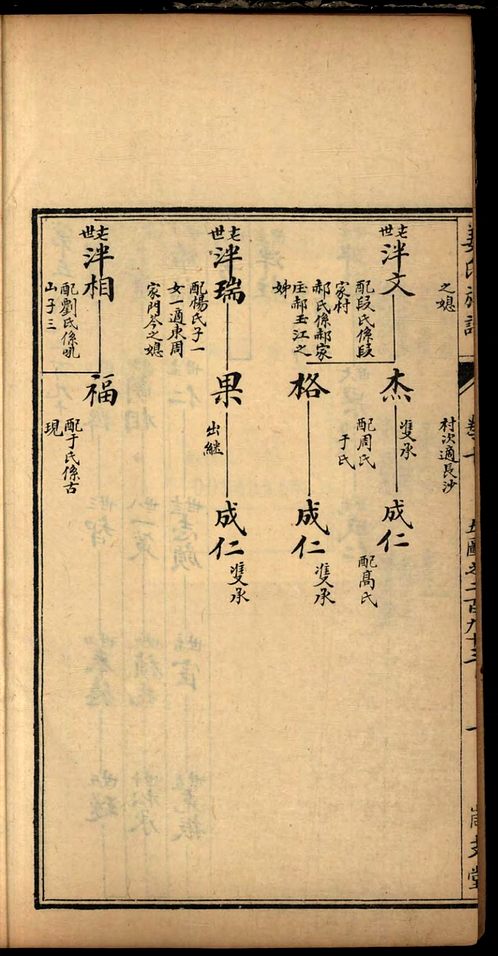 姜氏族譜
卷十
五圖之二百九十三
之媳
村次適長沙
世
泮文
配段氏係段
家村
郝氏係郝家
庄郝玉江之
姊
杰
雙承
配周氏
于氏
成仁
配高氏
格
成仁
雙承
世
泮瑞
配楊氏子一
女一適東周
家門岑之媳
果
出繼
成仁
雙承
世
泮相
配劉氏係吼
山子三
福
配于氏係古
現